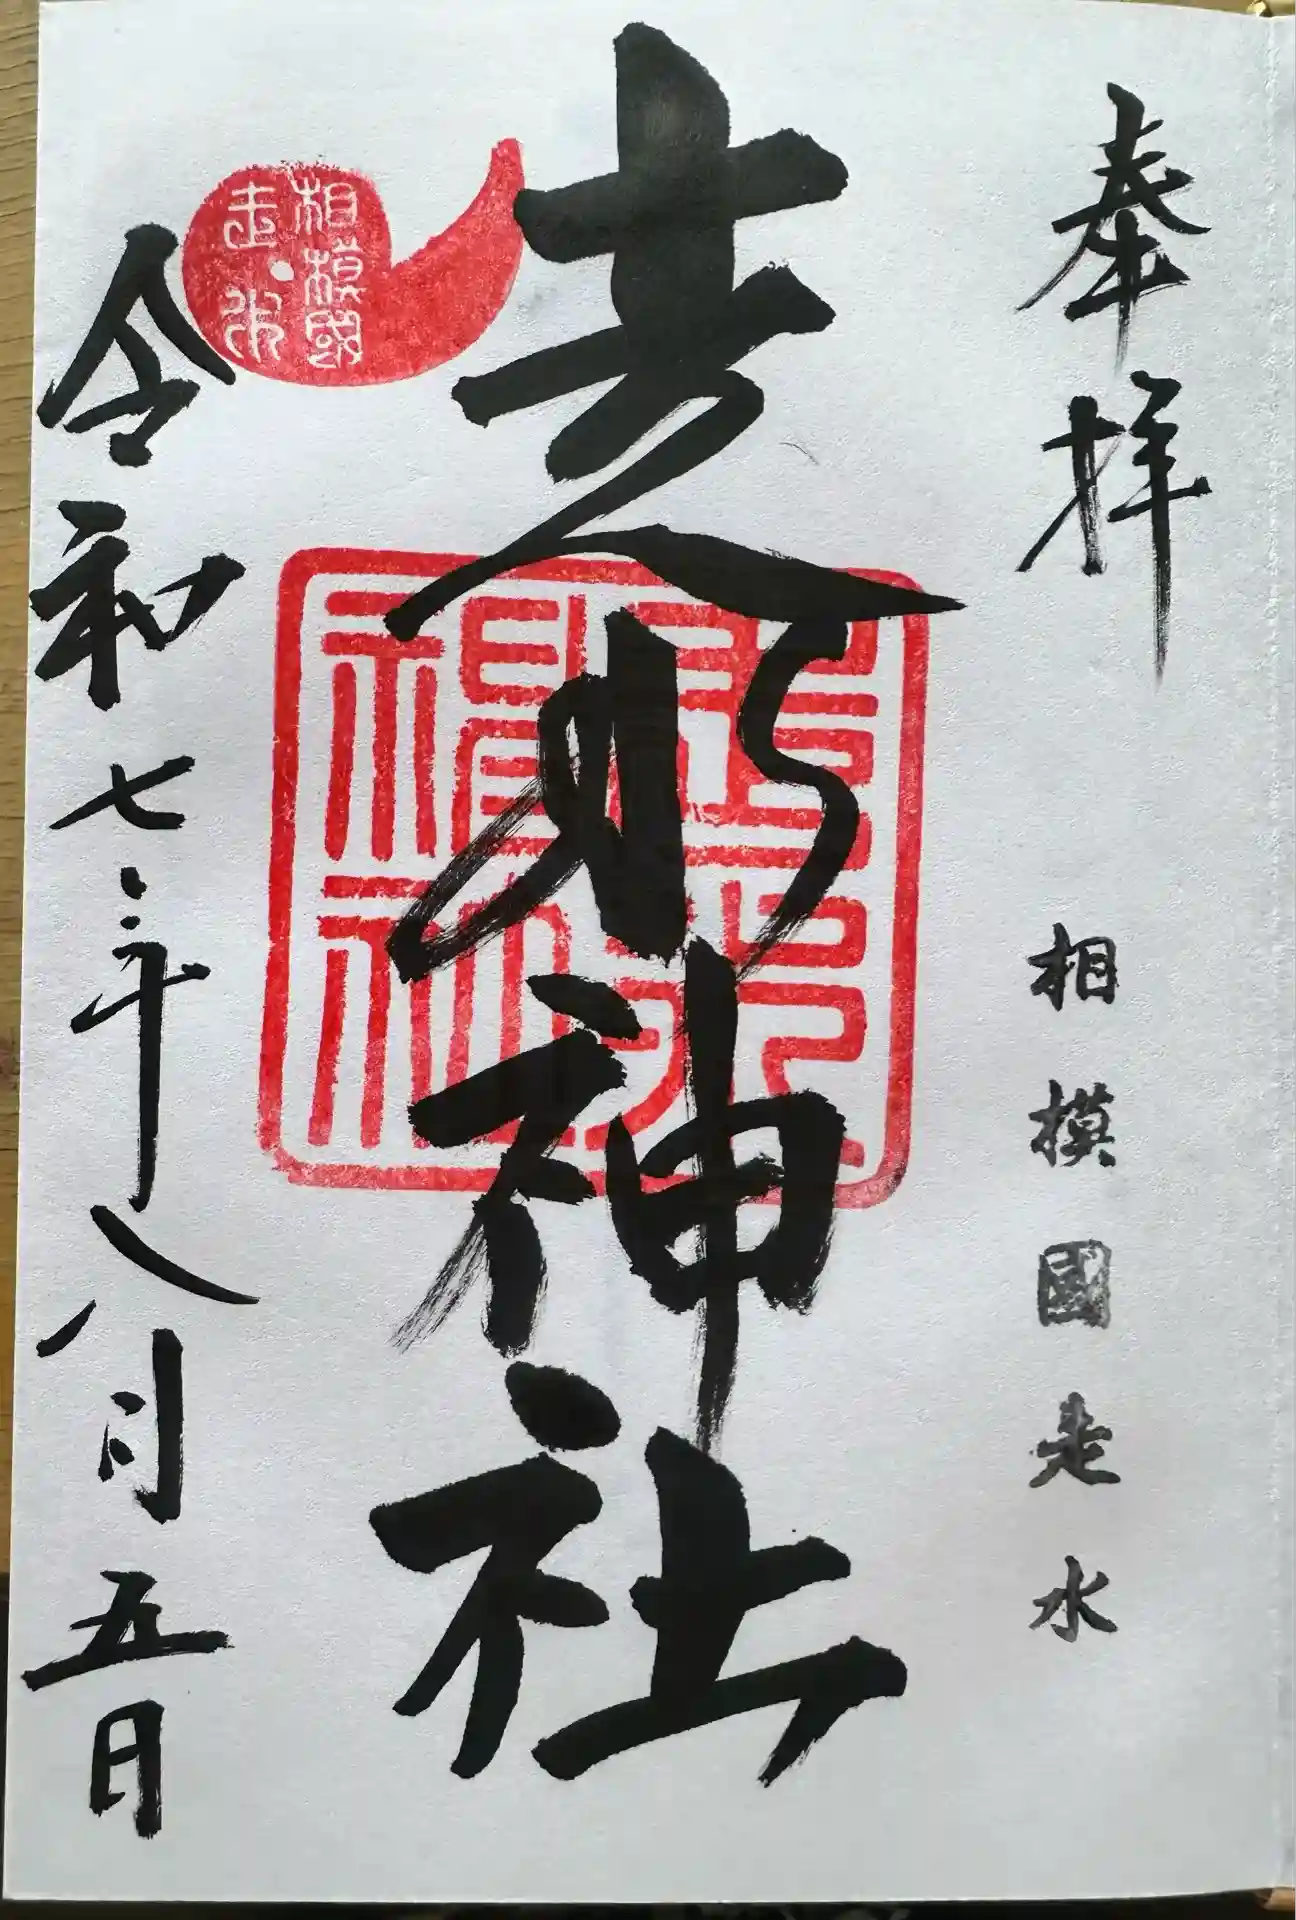 奉拝
相模國走水
走水神社
相模國
走水
走水神社
令和七年八月五日